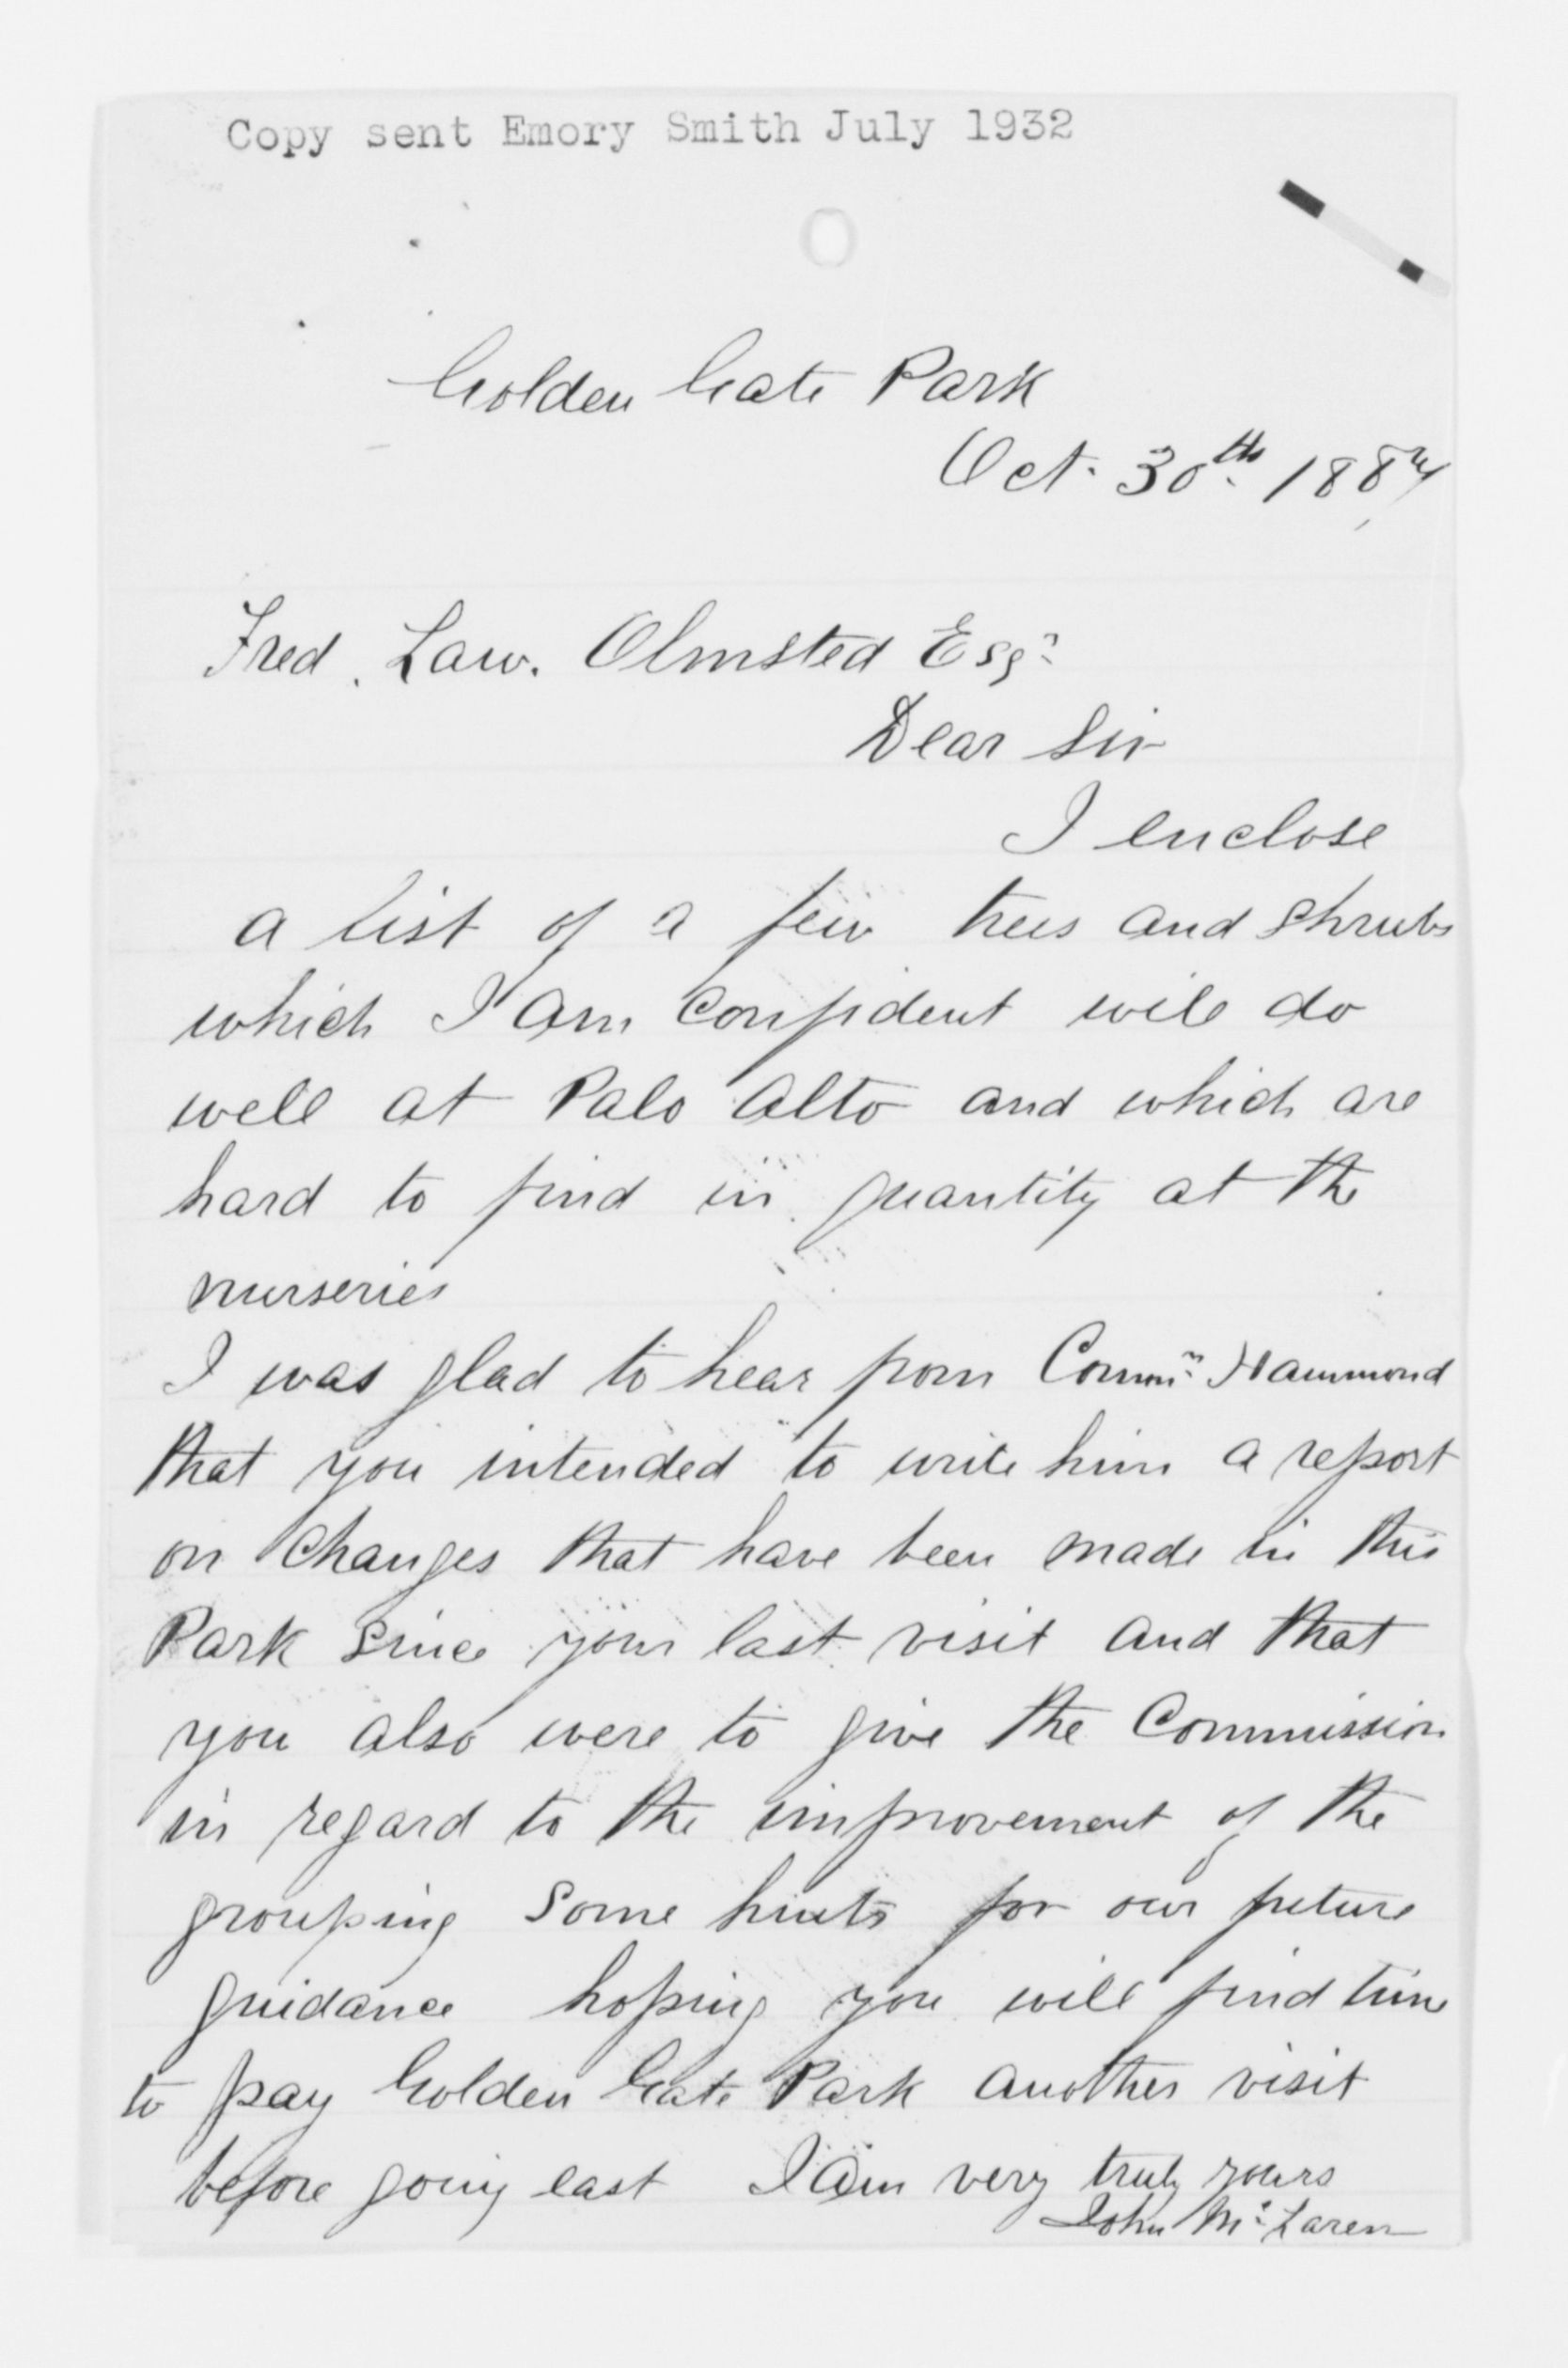 Copy sent Emory Smith July 1932
Golden Gate Park
Oct. 30th. 1887
Fred. Law. Olmsted Esqr.
Dear Sir
I enclose
a list of a few trees and shrubs
which I am confident will do
well at Palo Alto and which are
hard to find in quantity at the
nurseries
I was glad to hear from Commn. Hammond
that you intended to write him a report
on changes that have been made in this
Park since your last visit and that
you also were to give the Commission
in regard to the improvement of the
grouping some hints for our future
guidance hoping you will find time
to pay Golden Gate Park another visit
before going east I am very truly yours
John McLaren